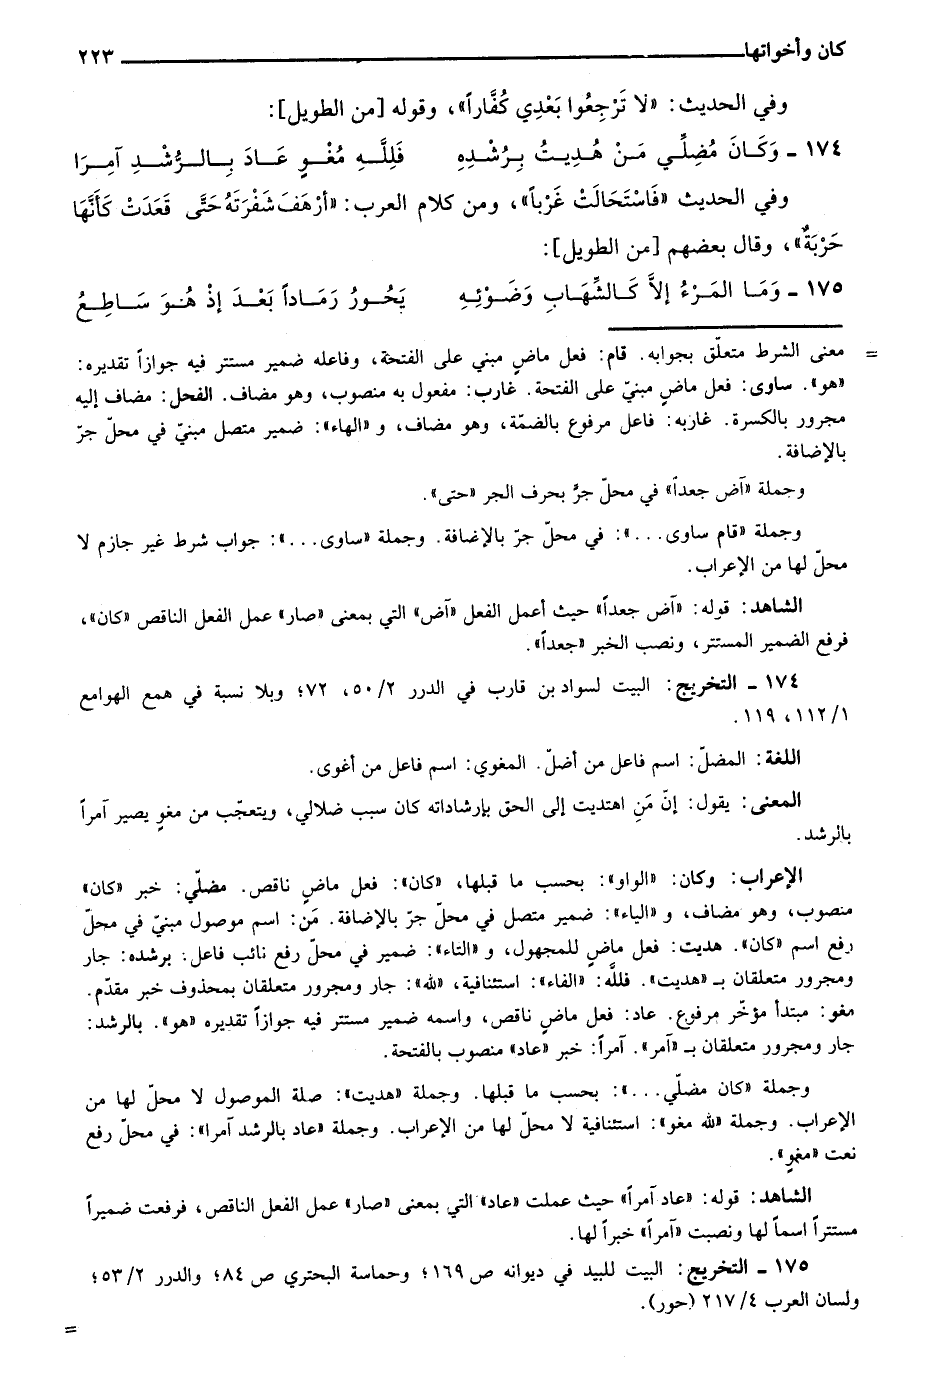 كان وأخواتها ٢٢٣
وفي الحديث: «لا تَرْجِعُوا بَعْدِي كُفَّاراً»، وقوله [من الطويل]:
١٧٤ ـ وَكَانَ مُضِلِّي مَنْ هُدِيتُ بِرُشْدِهِ فَلِلَّهِ مُغْوٍ عَادَ بِالرُّشْدِ آمِرَا
وفي الحديث «فَاسْتَحَالَتْ غَرْباً»، ومن كلام العرب: «أَرْهَفَ شَفْرَتَهُ حَتَّى قَعَدَتْ كَأَنَّهَا
حَرْبَةٌ»، وقال بعضهم [من الطويل]:
١٧٥ ـ وَمَا المَرْءُ إلاَّ كَالشِّهَابِ وَضَوْئِهِ يَحُورُ رَمَاداً بَعْدَ إذْ هُوَ سَاطِعُ
= معنى الشرط متعلّق بجوابه. قام: فعل ماضٍ مبني على الفتحة، وفاعله ضمير مستتر فيه جوازاً تقديره:
«هو». ساوى: فعل ماضٍ مبنيّ على الفتحة. غارب: مفعول به منصوب، وهو مضاف. الفحل: مضاف إليه
مجرور بالكسرة. غاربه: فاعل مرفوع بالضمّة، وهو مضاف، و«الهاء»: ضمير متصل مبنيّ في محلّ جرّ
بالإضافة.
وجملة «آض جعداً» في محلّ جرٍّ بحرف الجر «حتى».
وجملة «قام ساوى...»: في محلّ جرّ بالإضافة. وجملة «ساوى...»: جواب شرط غير جازم لا
محلّ لها من الإعراب.
الشاهد: قوله: «آض جعداً» حيث أعمل الفعل «آض» التي بمعنى «صار» عمل الفعل الناقص «كان»،
فرفع الضمير المستتر، ونصب الخبر «جعداً».
١٧٤ ـ التخريج: البيت لسواد بن قارب في الدرر ٥٠/٢، ٧٢؛ وبلا نسبة في همع الهوامع
١١٢/١، ١١٩.
اللغة: المضلّ: اسم فاعل من أضلّ. المغوي: اسم فاعل من أغوى.
المعنى: يقول: إنّ مَنِ اهتديت إلى الحق بإرشاداته كان سبب ضلالي، ويتعجّب من مغوٍ يصير آمراً
بالرشد.
الإعراب: وكان: «الواو»: بحسب ما قبلها، «كان»: فعل ماضٍ ناقص. مضلّي: خبر «كان»
منصوب، وهو مضاف، و«الياء»: ضمير متصل في محلّ جرّ بالإضافة. مَن: اسم موصول مبنيّ في محلّ
رفع اسم «كان». هديت: فعل ماضٍ للمجهول، و«التاء»: ضمير في محلّ رفع نائب فاعل. برشده: جار
ومجرور متعلقان بـ«هديت». فللَّه: «الفاء»: استئنافية، «لله»: جار ومجرور متعلقان بمحذوف خبر مقدّم.
مغو: مبتدأ مؤخّر مرفوع. عاد: فعل ماضٍ ناقص، واسمه ضمير مستتر فيه جوازاً تقديره «هو». بالرشد:
جار ومجرور متعلقان بـ«آمر». آمراً: خبر «عاد» منصوب بالفتحة.
وجملة «كان مضلّي...»: بحسب ما قبلها. وجملة «هديت»: صلة الموصول لا محلّ لها من
الإعراب. وجملة «لله مغو»: استئنافية لا محلّ لها من الإعراب. وجملة «عاد بالرشد آمرا»: في محلّ رفع
نعت «مغوٍ».
الشاهد: قوله: «عاد آمراً» حيث عملت «عاد» التي بمعنى «صار» عمل الفعل الناقص، فرفعت ضميراً
مستتراً اسماً لها ونصبت «آمراً» خبراً لها.
١٧٥ ـ التخريج: البيت للبيد في ديوانه ص ١٦٩؛ وحماسة البحتري ص ٨٤؛ والدرر ٥٣/٢؛
ولسان العرب ٢١٧/٤ (حور).
=